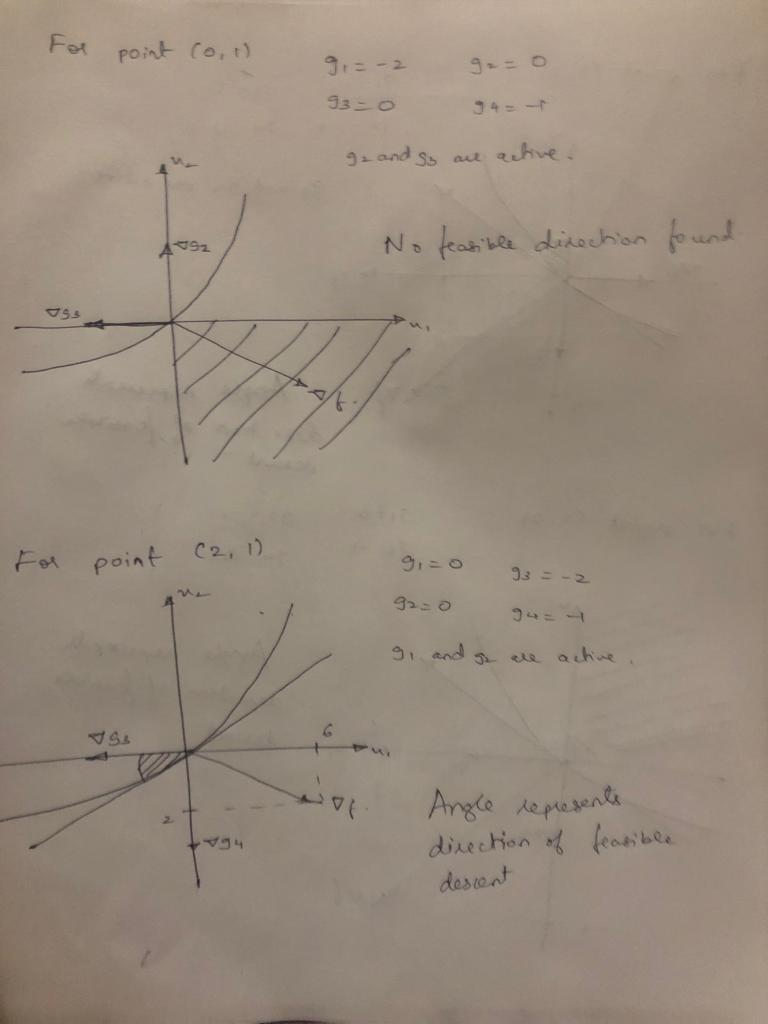 For point (0, 1)
g1 = -2 g2 = 0
g3 = 0 g4 = -1
g2 and g3 are active.
x2
∇g2
No feasible direction found
∇g3
x1
∇f.
For point (2, 1)
g1 = 0 g3 = -2
g2 = 0 g4 = -1
g1 and g2 are active.
x2
∇g3
6
x1
2
∇f.
∇g4
Angle represents
direction of feasible
descent